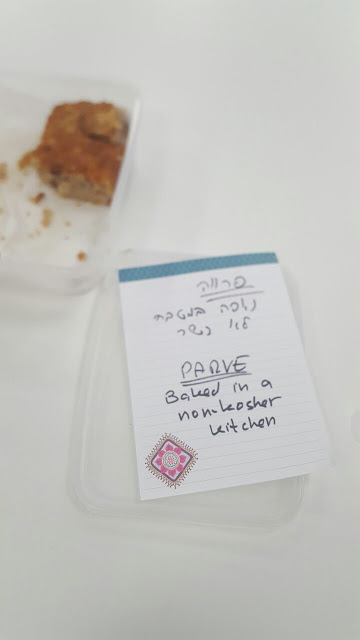 פרווה
נאפה במטבח
לא כשר
PARVE
Baked in a
non-kosher
kitchen